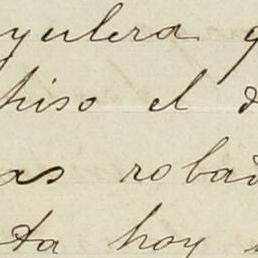 yulera q
hiso el d
as robad
ta hoy